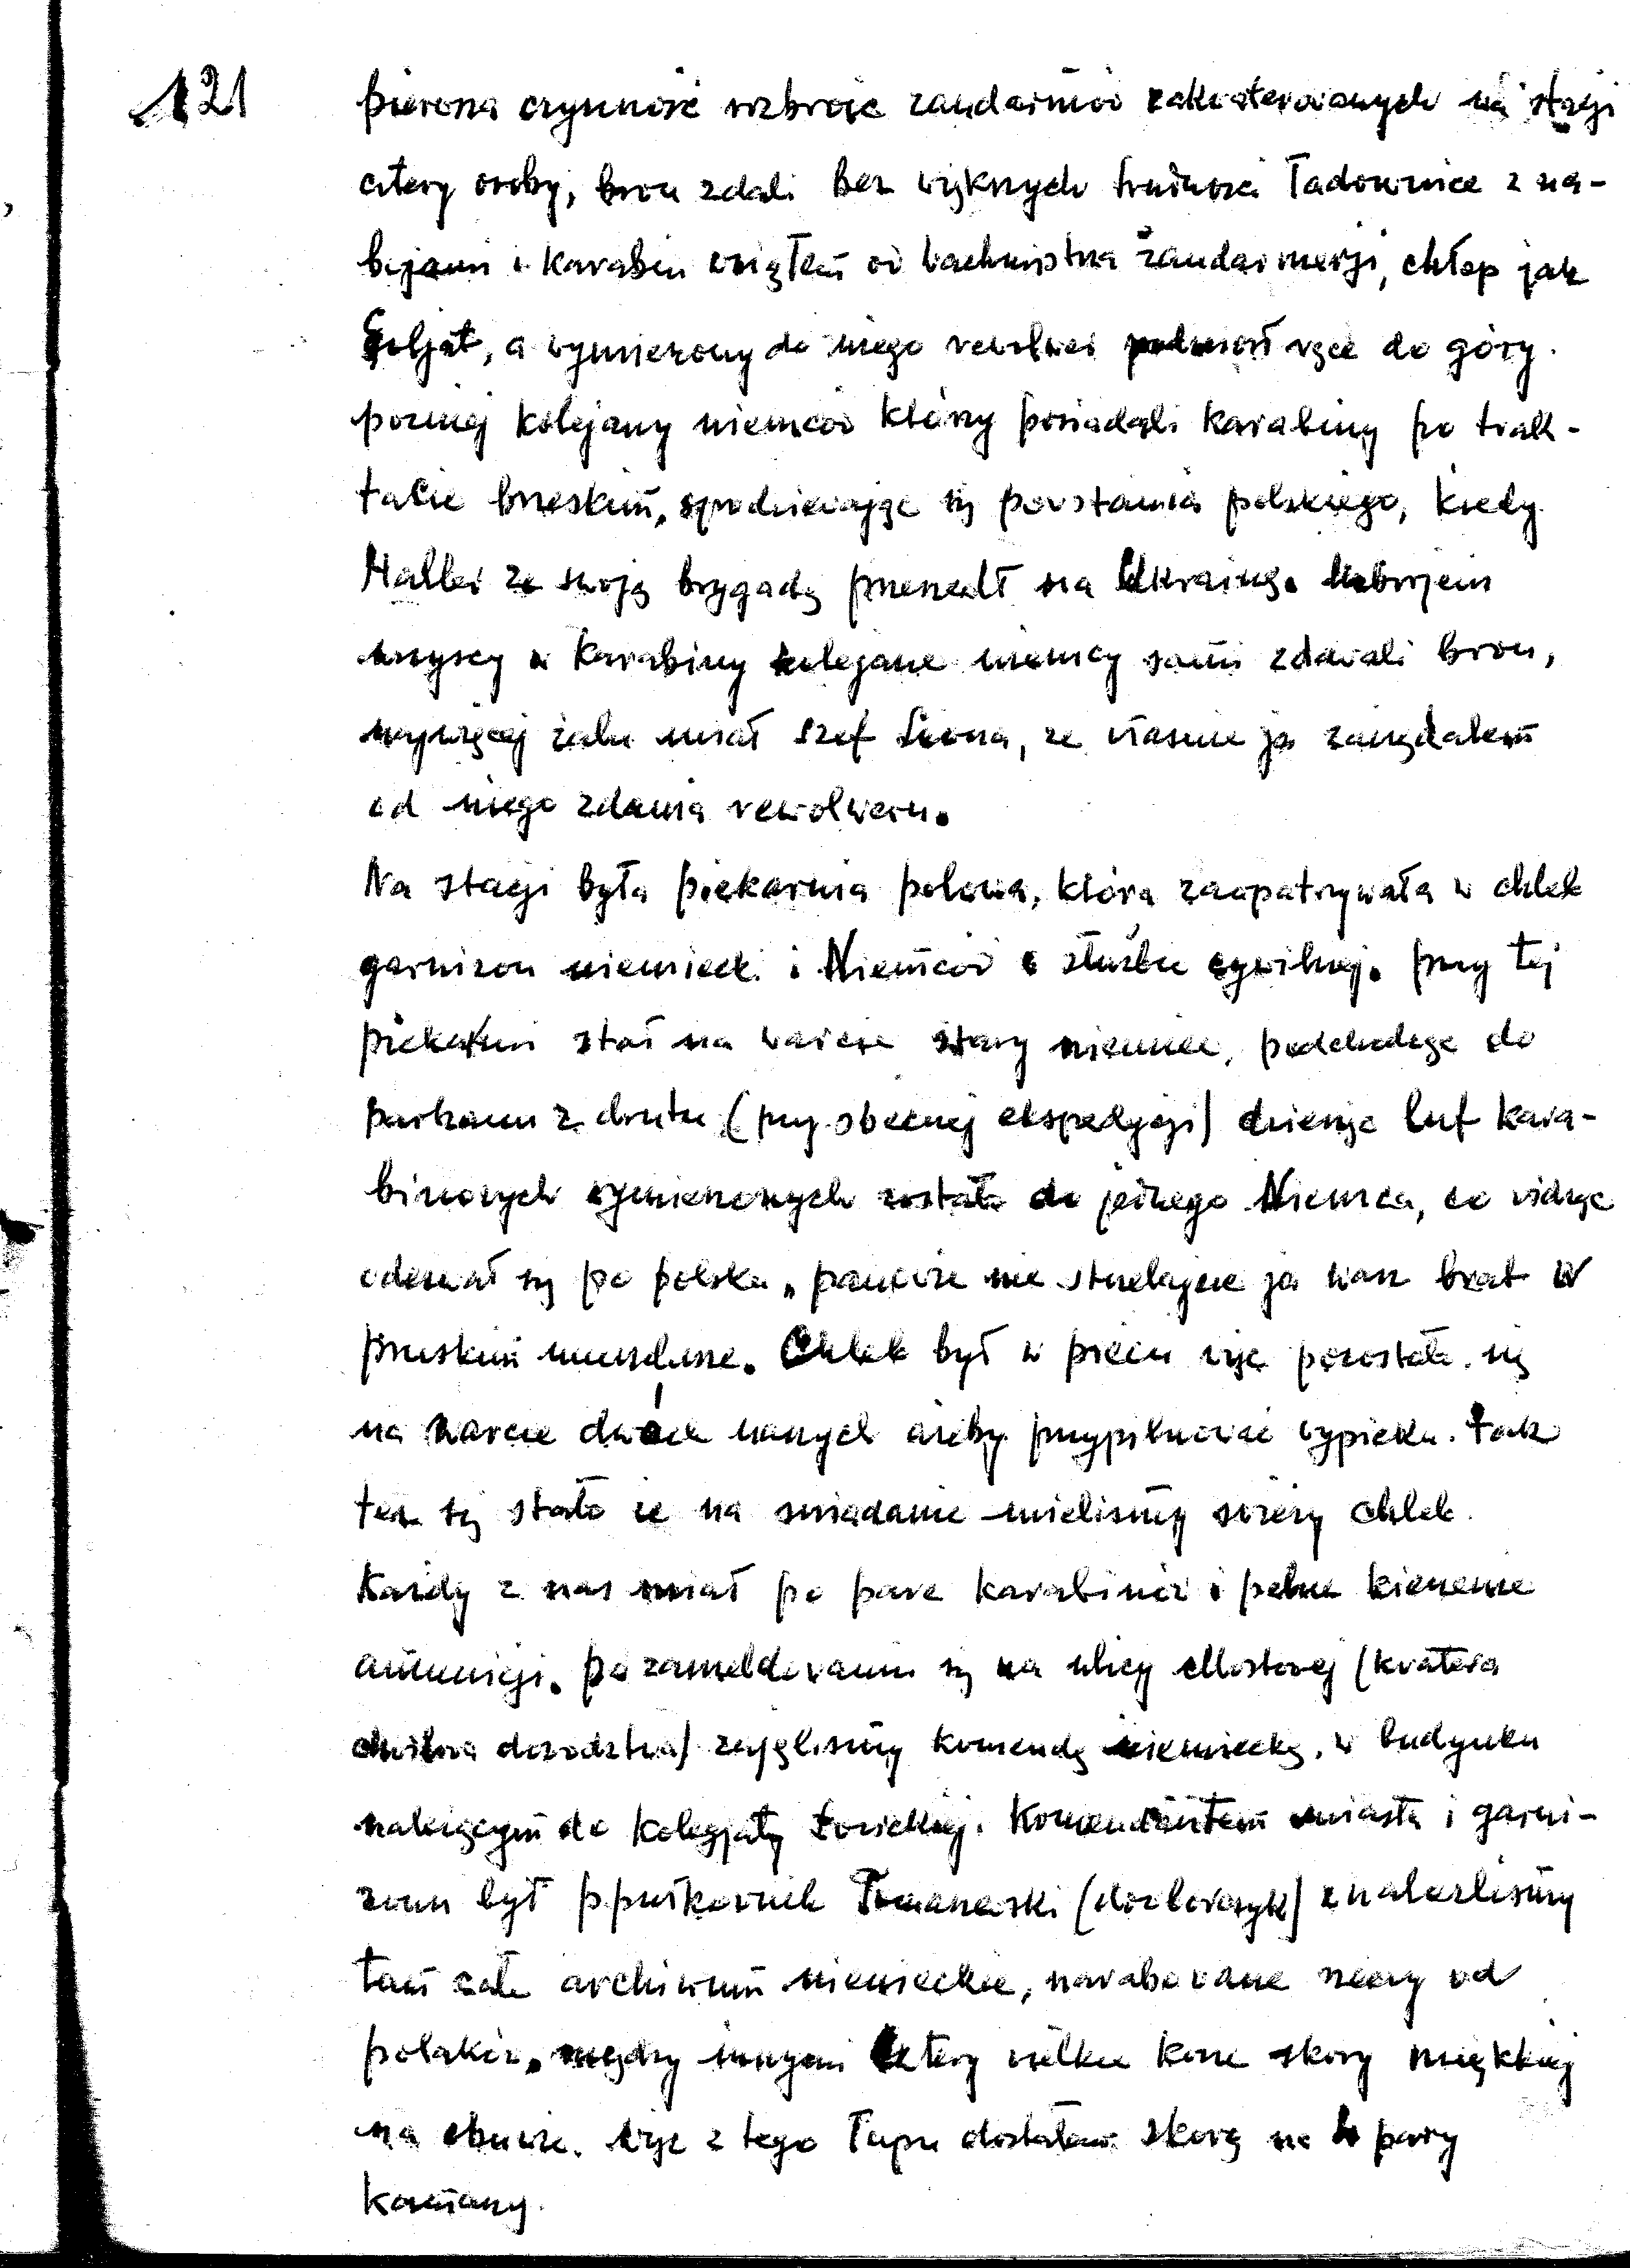 121
pierwsza czynność rozbroić żandarmów zakwaterowanych na stacji
cztery osoby, broń zdali bez większych trudności ładownice z na-
bojami i karabin wziąłem od wachmistrza żandarmerji, chłop jak
Goljat, a wymierzony do niego rewolwer podniósł ręce do góry.
pozniej kolejarzy niemców którzy posiadali karabiny po trak-
tacie brzeskim, spodziewając się powstania polskiego, kiedy
Haller ze swoją brygadą przeszedł na Ukrainę. Uzbrojeni
wszyscy w karabiny kolejarze niemcy sami zdawali broń,
najwięcej żalu miał szef, że właśnie ja zażądałem
od niego zdania rewolweru.
Na stacji była piekarnia polowa, która zaopatrywała w chleb
garnizon niemiecki i Niemców o służbie cywilnej. przy tej
piekarni stał na warcie stary niemiec, podchodząc do
parkanu z drutu (przy obecnej ekspedycji) dziesięć luf kara-
binowych wymierzonych zostało do jednego Niemca, co widząc
odezwał się po polsku „panowie nie strzelajcie ja wasz brat w
pruskim mundurze. Chleb był w piecu więc pozostało się
na warcie dwóch naszych ażeby przypilnować wypieku. tak
też się stało że na sniadanie mielismy świeży chleb.
Każdy z nas miał po parę karabinów i pełne kieszenie
amunicji. po zameldowaniu się na ulicy Mostowej (kwatera
chwilowa dowództwa) zajęlismy komendę niemiecką. w budynku
należącym do Kolegjaty Łowickiej. Komendantem miasta i garni-
zonu był ppułkownik (dozborczyk) znalezlismy
tam całe archiwum niemieckie, narabowane rzeczy od
polaków, między innymi cztery wielkie kosze skory miękkiej
na obuwie. więc z tego łupu dostałem skorę na 2 pary
kamaszy.